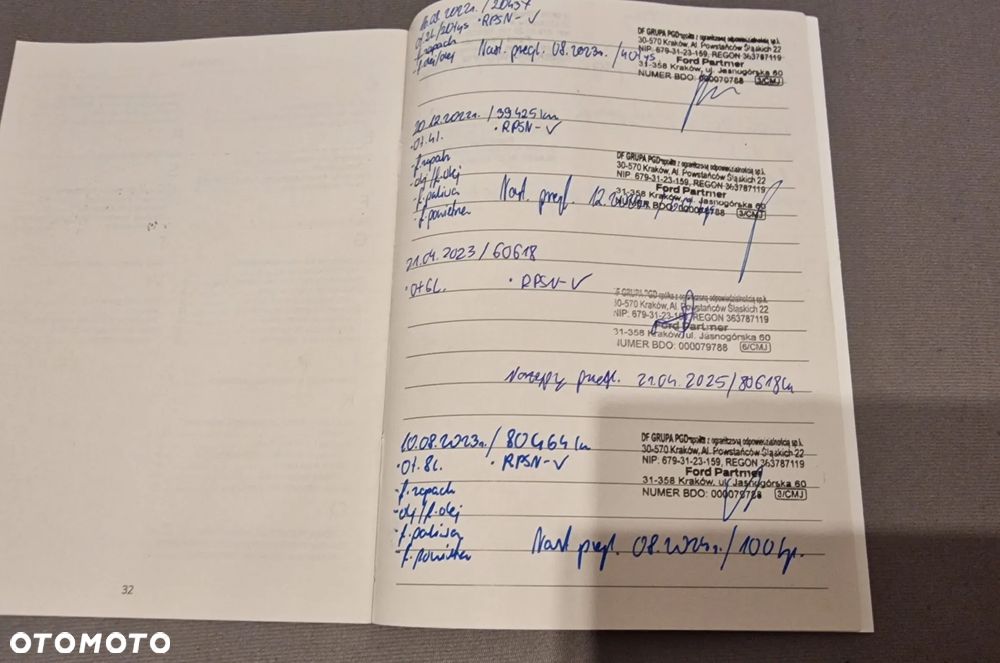 16.08.2022r. / 20437
Ot.2L/20tys • RPSN-V
f. zapach
f. olej/olej
Nast. przegl. 08.2023r. / 40tys
DF GRUPA PGD spółka z ograniczoną odpowiedzialnością sp.k.
30-570 Kraków, Al. Powstańców Śląskich 22
NIP: 679-31-23-159, REGON 363787119
Ford Partner
31-358 Kraków, ul. Jasnogórska 60
NUMER BDO: 000079788 3/CMJ
20.12.2022r. / 39425km
• Ot.4L. • RPSN-V
- f. zapach
- olej/f.olej
- f. paliwa
- f. powietrza
Nast. przegl. 12.
DF GRUPA PGD spółka z ograniczoną odpowiedzialnością sp.k.
30-570 Kraków, Al. Powstańców Śląskich 22
NIP: 679-31-23-159, REGON 363787119
Ford Partner
31-358 Kraków, ul. Jasnogórska 60
NUMER BDO: 000079788 3/CMJ
21.04.2023 / 60618
• Ot6L. • RPSN-V
DF GRUPA PGD spółka z ograniczoną odpowiedzialnością sp.k.
30-570 Kraków, Al. Powstańców Śląskich 22
NIP: 679-31-23-159, REGON 363787119
Ford Partner
31-358 Kraków, ul. Jasnogórska 60
NUMER BDO: 000079788 6/CMJ
Następny przegl. 21.04.2025/80618km
10.08.2023r. / 80464km
• Ot.8L. • RPSN-V
- f. zapach
- olej/f.olej
- f. paliwa
- f. powietrza
DF GRUPA PGD spółka z ograniczoną odpowiedzialnością sp.k.
30-570 Kraków, Al. Powstańców Śląskich 22
NIP: 679-31-23-159, REGON 363787119
Ford Partner
31-358 Kraków, ul. Jasnogórska 60
NUMER BDO: 000079788 3/CMJ
Nast. przegl. 08.2024r. / 100tys.
32
OTOMOTO